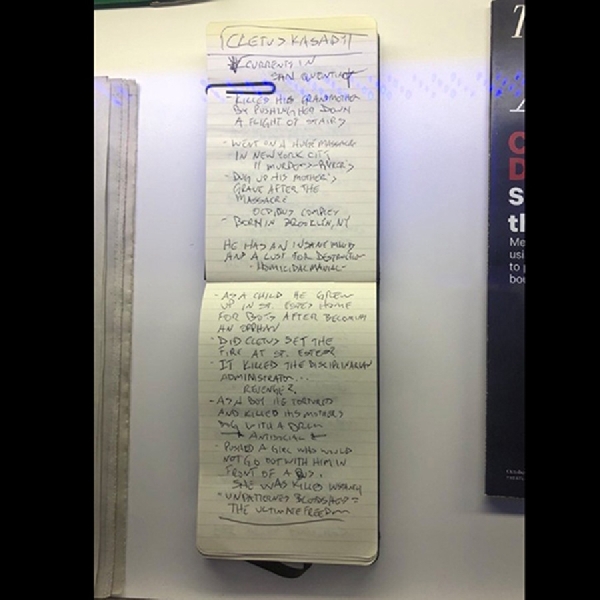 CLETUS KASADY
CURRENTLY IN
SAN QUENTIN
- KILLED HIS GRANDMOTHER
BY PUSHING HER DOWN
A FLIGHT OF STAIRS
- WENT ON A HUGE MASSACRE
IN NEW YORK CITY
11 MURDERS
- DUG UP HIS MOTHER'S
GRAVE AFTER THE
MASSACRE
COMPLEX
- BORN IN BROOKLYN, NY
HE HAS AN INSANE MIND
AND A LUST FOR DESTRUCTION
- HOMICIDAL MANIAC
- AS A CHILD HE GREW
UP IN ST. ESTES HOME
FOR BOYS AFTER BECOMING
AN ORPHAN
- DID CLETUS SET THE
FIRE AT ST. ESTES?
- IT KILLED THE DISCIPLINARIAN
ADMINISTRATOR...
REVENGE?
- AS A BOY HE TORTURED
AND KILLED HIS MOTHER'S
DOG WITH A DRILL
ANTISOCIAL
- PUSHED A GIRL WHO WOULD
NOT GO OUT WITH HIM IN
FRONT OF A BUS.
SHE WAS KILLED INSTANTLY
BLOODSHED =
THE ULTIMATE FREEDOM
T
S
th
Me
usi
to p
bou